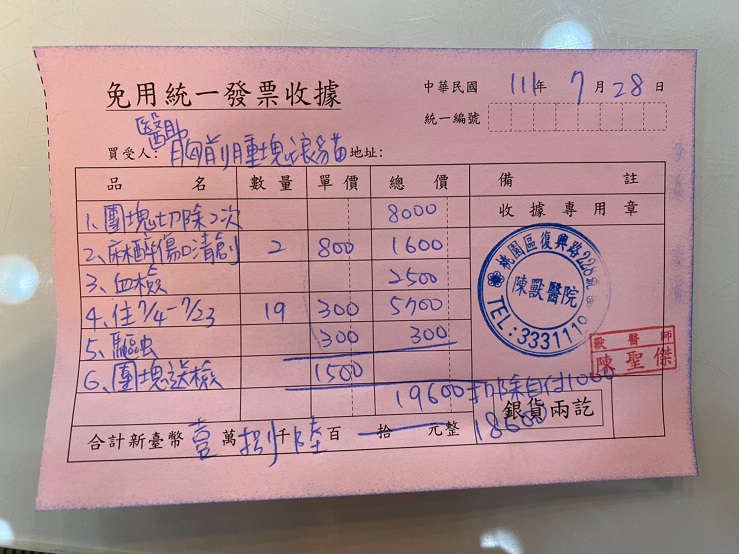 免用統一發票收據
中華民國 111年 7月28日
統一編號
買受人: 胸前腫塊浪貓 地址:
品名 數量 單價 總價 備註
收據專用章
1、團塊切除2次 8000
2、麻醉傷口清創 2 800 1600
3、血檢 2500
4、住7/4-7/23 19 300 5700
5、驅虫 300 300
6、團塊送檢 1500
19600扣除自付1000
18600
銀貨兩訖
合計新臺幣 壹萬捌千陸百 拾 元整
桃園區復興路226號
陳獸醫院
TEL:3331110
獸醫師
陳聖傑